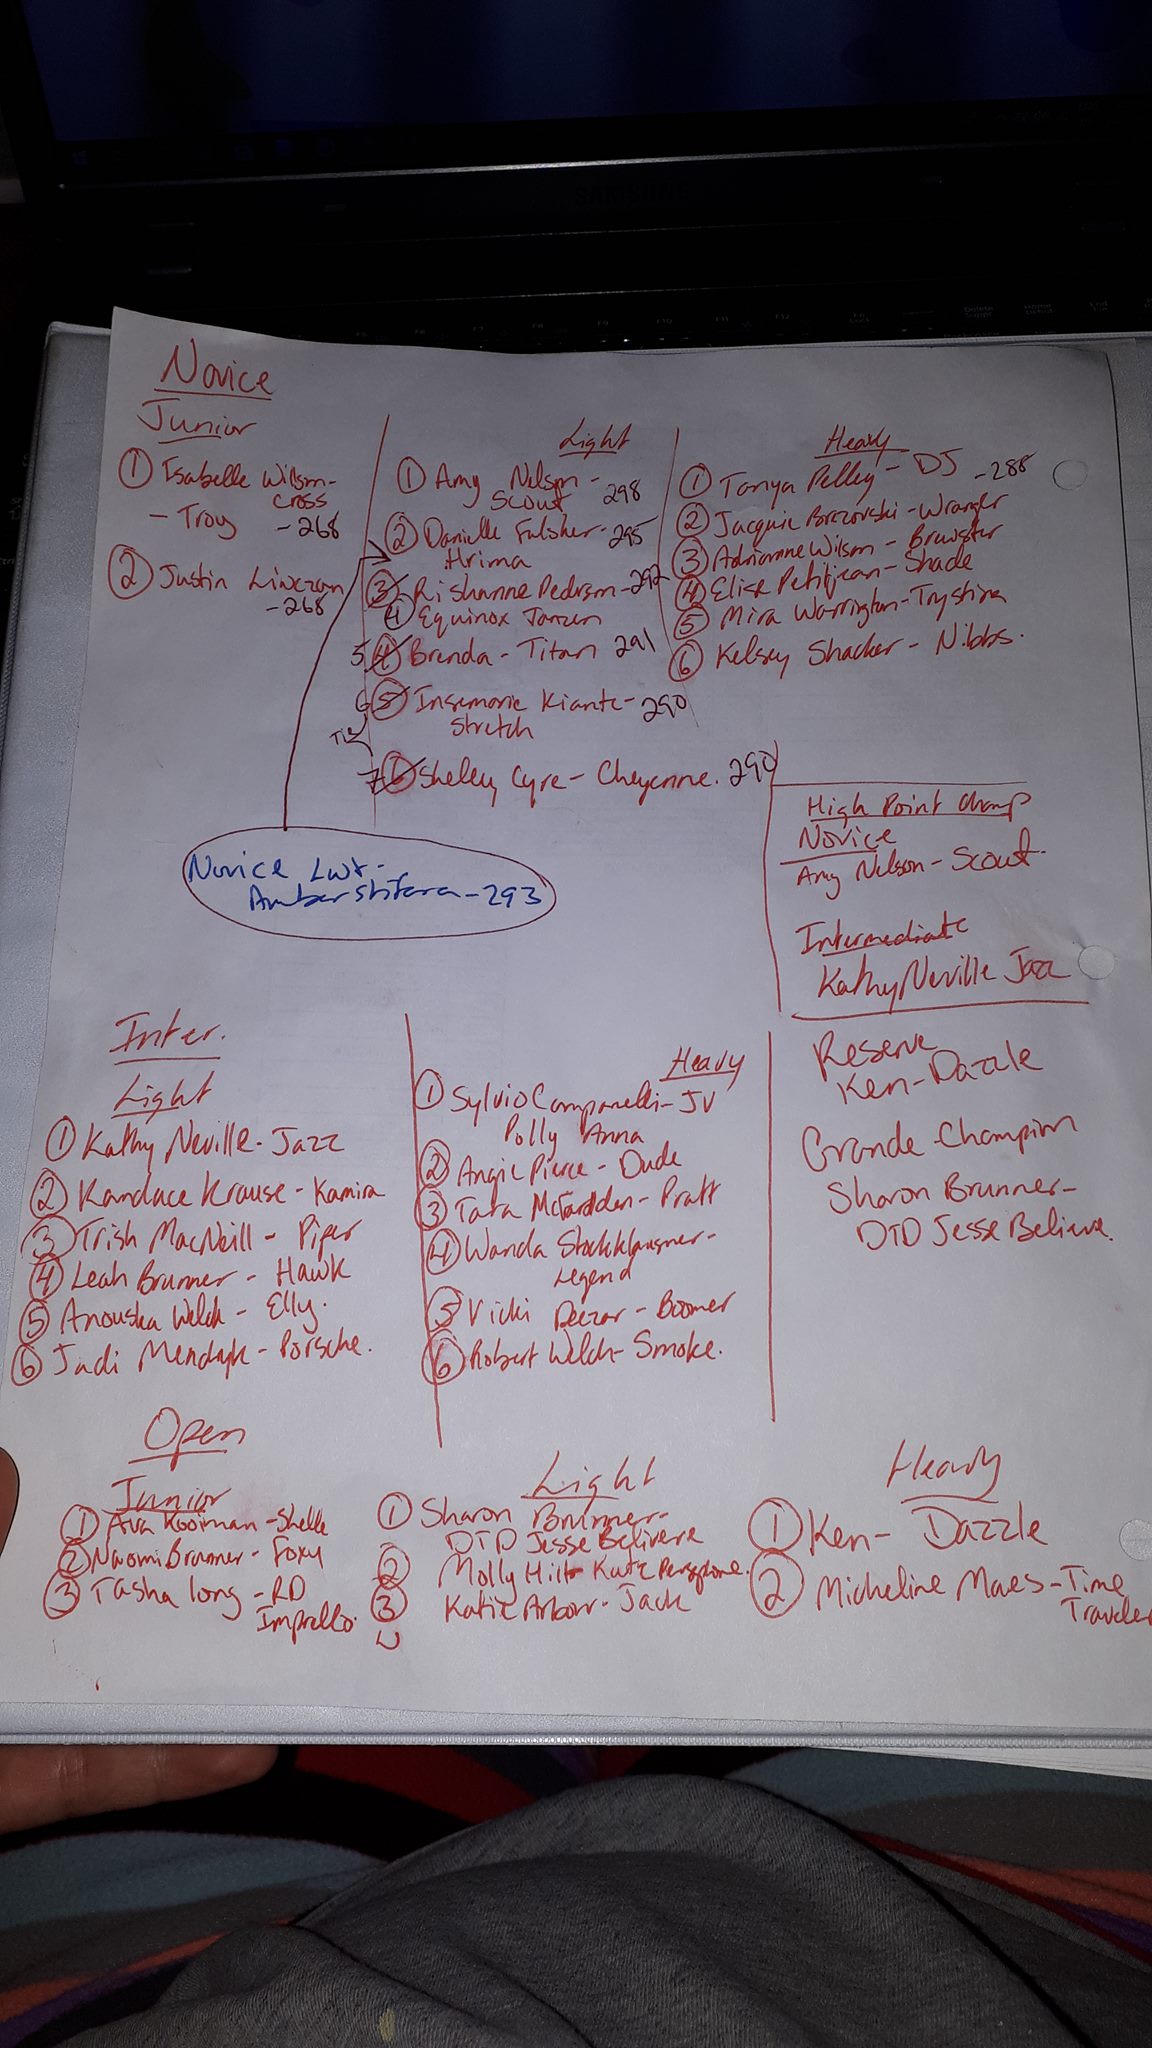 SAMSUNG
Novice
Junior
① Isabelle Wilson-
Cross
- Troy - 268
② Justin
- 268
Light
① Amy Nelson -
Scout 298
② Danielle - 295
Hrima
③ Rishanne Pederson - 292
4 Equinox Janzen
5 ④ Brenda - Titan 291
6 ⑤ Kiante - 290
Stretch
Tie
7 ⑥ Shelley Cyre - Cheyenne. 290
Heavy
① Tanya Pelley - DJ - 288
② Jacquie - Wrangler
③ Adrianne Wilson - Brewster
④ Elise Petitjean - Shade
⑤ Mira Warrington - Trystina
⑥ Kelsey Shacker - Nibbs.
Novice Lwt -
Amber - 293
High Point Champ
Novice
Amy Nelson - Scout.
Intermediate
Kathy Neville Jazz
Reserve
Ken - Dazzle
Grande Champion
Sharon Brunner -
DTD Jesse Believe.
Inter.
Light
① Kathy Neville - Jazz
② Kandace Krause - Kamira
③ Trish MacNeill - Piper
④ Leah Brunner - Hawk
⑤ Anouska Welch - Elly.
⑥ Jodi Mendryk - Porsche.
Heavy
① Sylvio Campanelli - JV
Polly Anna
② Angie Pierce - Dude
③ Tara McFadden - Pratt
④ Wanda Stockklausner -
Legend
⑤ Vicki - Boomer
⑥ Robert Welch - Smoke.
Open
Junior
① Ava Kooiman - Shelle
② Naomi Brunner - Foxy
③ Tasha Long - RD
Light
① Sharon Brunner -
DTD Jesse
② Molly Hill - Kutz
③ Katie Arbour - Jack
Heavy
① Ken - Dazzle
② Micheline Maes - Time
Traveler